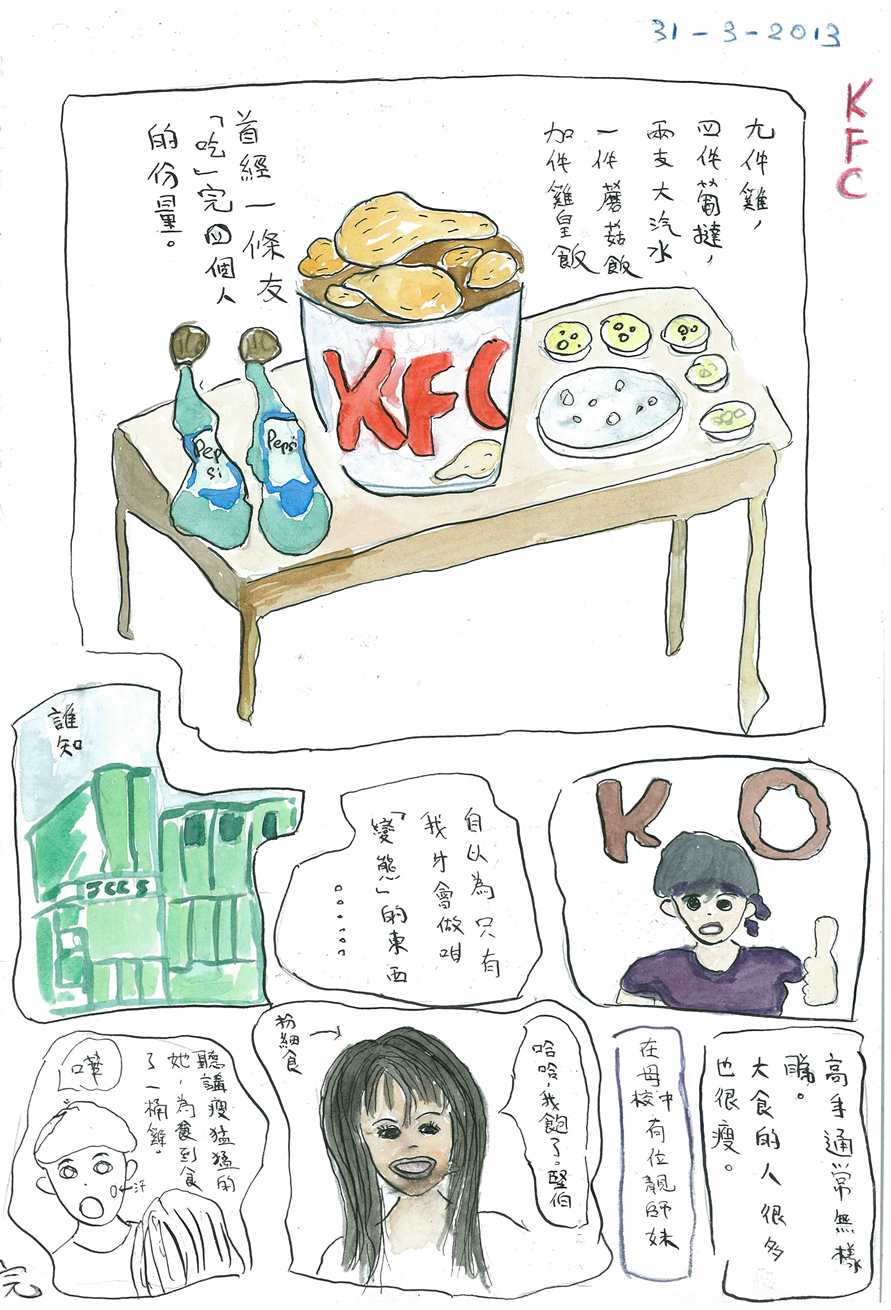 31-3-2013
KFC
九件雞，
四件葡撻，
兩支大汽水
一件蘑菇飯
加件雞皇飯
首經一條友
「吃」完四個人
的份量。
KFC
Pep
si
Pepsi
KO
自以為只有
我才會做咁
「變態」的東西
……
誰知
高手通常無樣
睇。
大食的人很多
也很瘦。
在母校中有位靚師妹
哈哈，我飽了。堅伯
粉細食
聽講瘦猛猛的
她，為食到食
了一桶雞。
嘩
汗
完